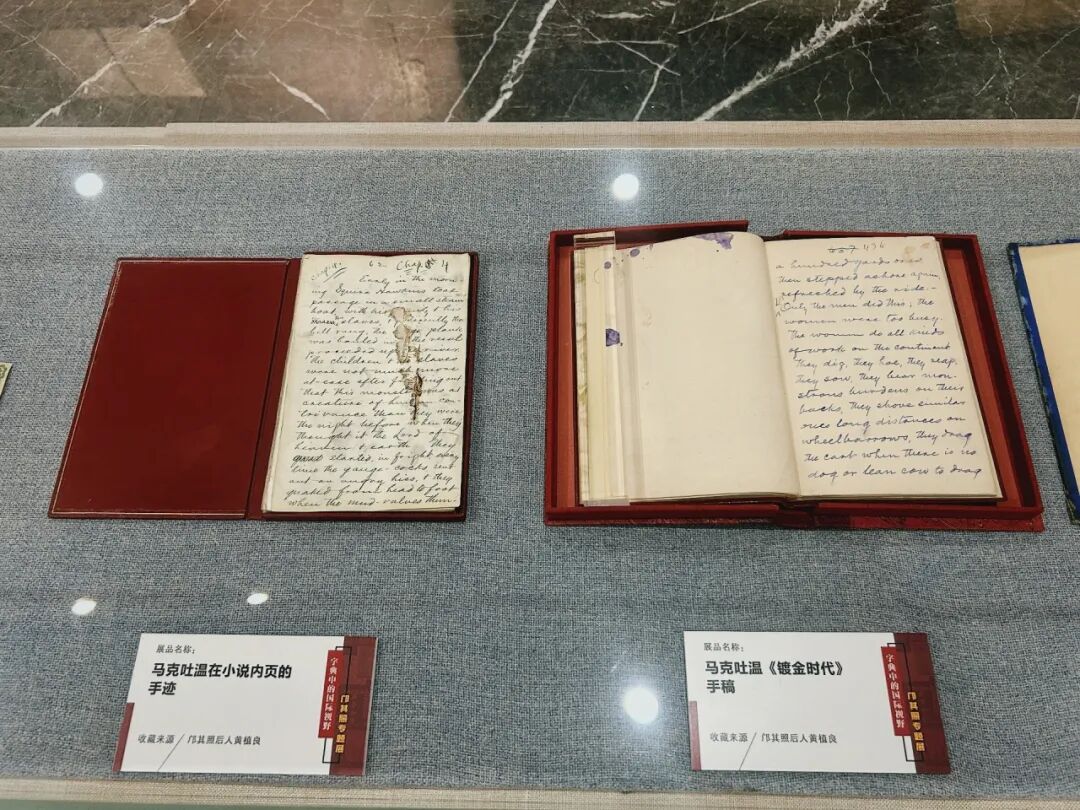 Chap. 4.
62 Chap. 4
Early in the morn-
ing Squire Hawkins took
passage in a small steam
boat, with his family & two
slaves, & presently the
bell rang, the plank
was hauled in & the vessel
proceeded up the river.
The children & the slaves
were not much more
at ease after finding out
that this monster was a
creature of human con-
trivance than they were
the night before when they
thought it the Lord of
heaven & earth. They
started, in fright, every
time the gauge-cocks sent
out an angry hiss, & they
quaked from head to foot
when the mud-valves thun-
434
a hundred yards or so
then stepped ashore again,
refreshed by the ride.—
Only the men did this; the
women were too busy.
The women do all kinds
of work on the continent
They dig, they hoe, they reap,
they sow, they bear mon-
strous burdens on their
backs, they shove similar
ones long distances on
wheelbarrows, they drag
the cart when there is no
dog or lean cow to drag
展品名称：
马克吐温在小说内页的
手迹
收藏来源 / 邝其照后人黄植良
字典中的国际视野
邝其照专题展
展品名称：
马克吐温《镀金时代》
手稿
收藏来源 / 邝其照后人黄植良
字典中的国际视野
邝其照专题展